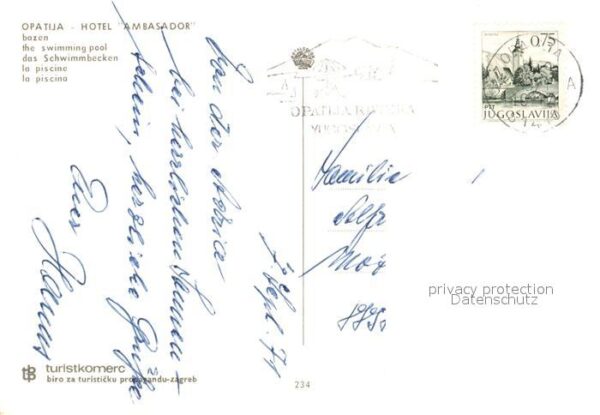 OPATIJA - HOTEL "AMBASADOR"
bazen
the swimming pool
das Schwimmbecken
la piscine
la piscina
Von der Adria
bei herrlichem Sonnen-
schein, herzliche Grüße
Euer
Hannes
7. Sept. 71
OPATIJA RIVIERA
YUGOSLAVIA
0,75
PTT
JUGOSLAVIJA
Familie
privacy protection
Datenschutz
turistkomerc
biro za turističku propagandu-zagreb
234